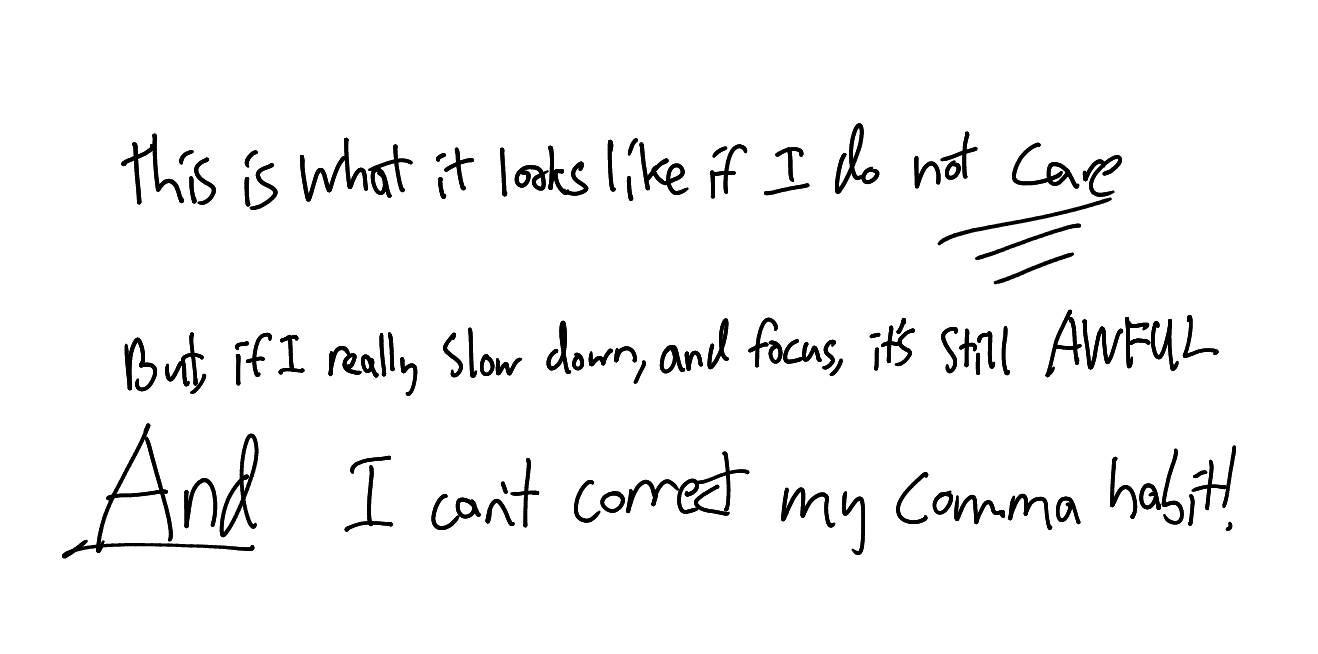 this is what it looks like if I do not care
But, if I really slow down, and focus, it's still AWFUL
And I can't correct my comma habit!